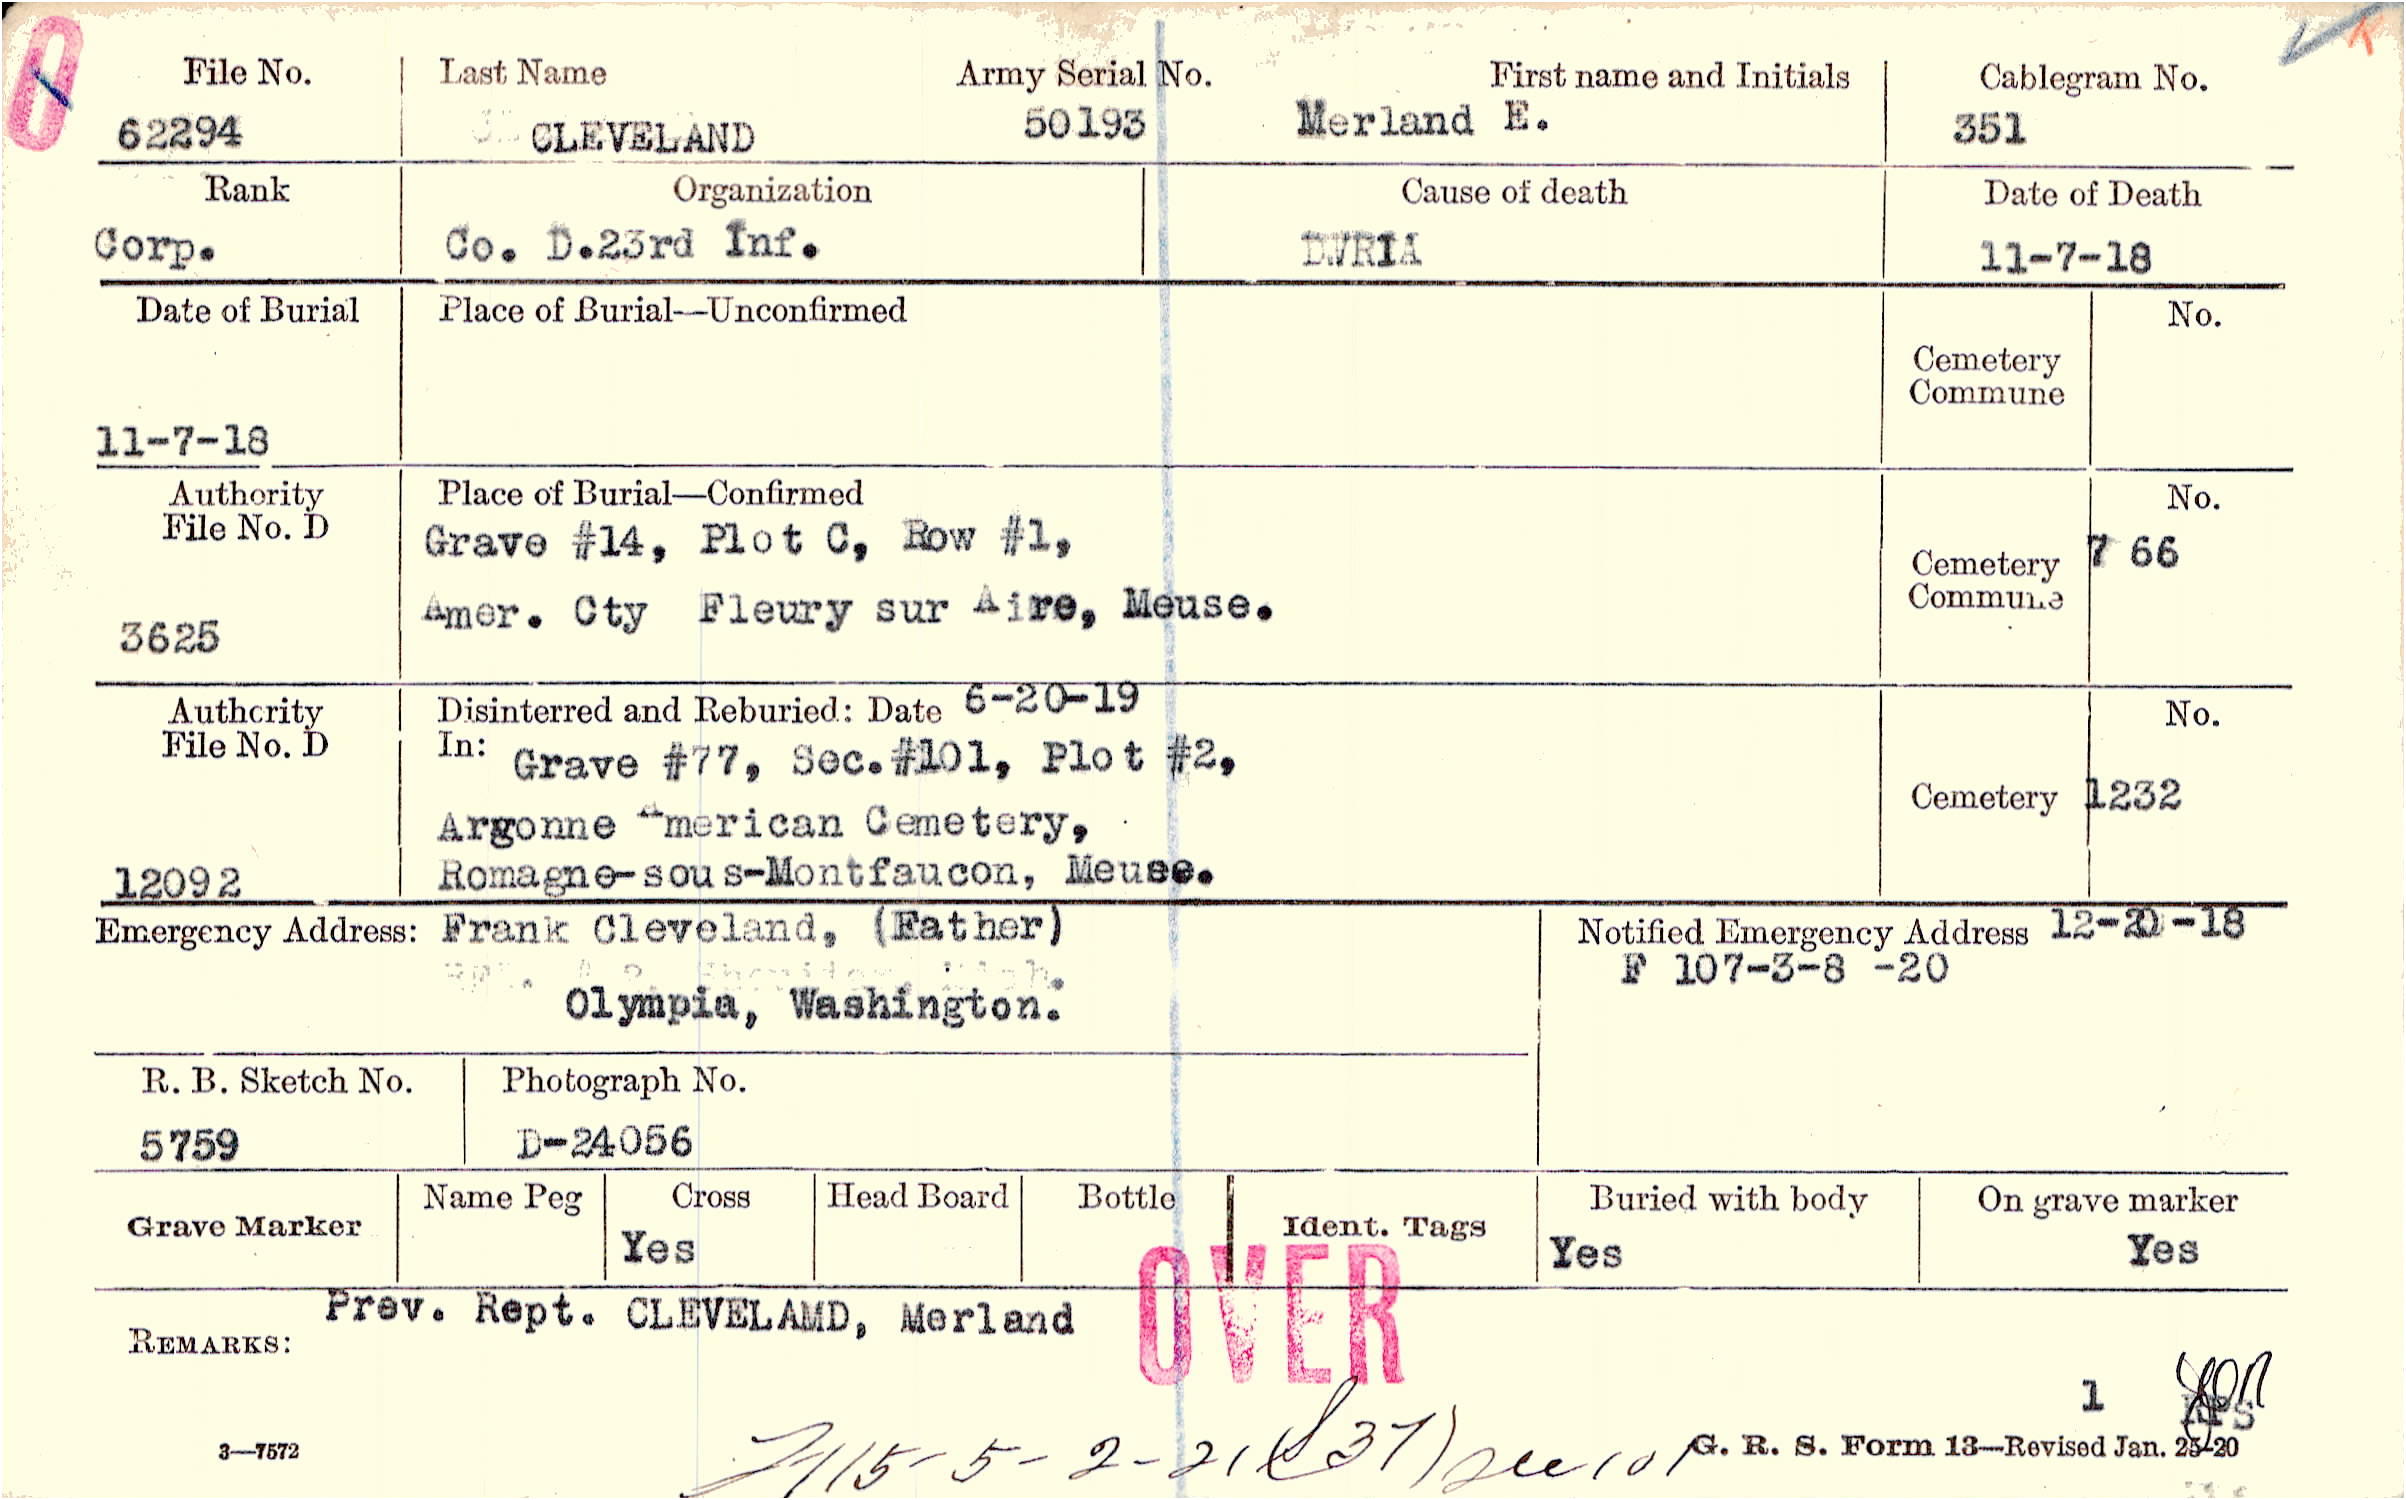 File No. Last Name Army Serial No. First name and Initials Cablegram No.
62294 CLEVELAND 50193 Merland E. 351
Rank Organization Cause of death Date of Death
Corp. Co. D.23rd Inf. DWRIA 11-7-18
Date of Burial Place of Burial—Unconfirmed No.
Cemetery
Commune
11-7-18
Authority Place of Burial—Confirmed No.
File No. D
Grave #14, Plot C, Row #1,
Cemetery 7 66
Commune
Amer. Cty Fleury sur Aire, Meuse.
3625
Authority Disinterred and Reburied: Date 6-20-19 No.
File No. D In: Grave #77, Sec.#101, Plot #2,
Cemetery 1232
Argonne American Cemetery,
12092 Romagne-sous-Montfaucon, Meuse.
Emergency Address: Frank Cleveland, (Father) Notified Emergency Address 12-21-18
F 107-3-8 -20
Olympia, Washington.
R. B. Sketch No. Photograph No.
5759 D-24056
Grave Marker Name Peg Cross Head Board Bottle Ident. Tags Buried with body On grave marker
Yes Yes Yes
OVER
REMARKS: Prev. Rept. CLEVELAMD, Merland
1
3—7572 115-5-2-21 (37) see 101 G. R. S. Form 13—Revised Jan. 25-20